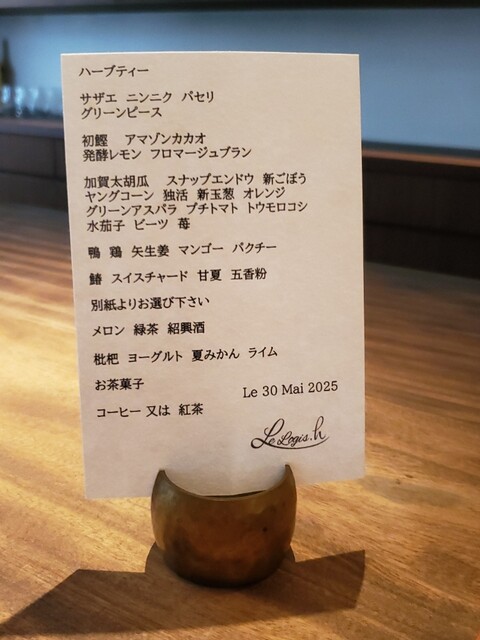 ハーブティー
サザエ ニンニク パセリ
グリーンピース
初鰹 アマゾンカカオ
発酵レモン フロマージュブラン
加賀太胡瓜 スナップエンドウ 新ごぼう
ヤングコーン 独活 新玉葱 オレンジ
グリーンアスパラ プチトマト トウモロコシ
水茄子 ビーツ 苺
鴨 鶏 矢生姜 マンゴー パクチー
鰆 スイスチャード 甘夏 五香粉
別紙よりお選び下さい
メロン 緑茶 紹興酒
枇杷 ヨーグルト 夏みかん ライム
お茶菓子
コーヒー 又は 紅茶
Le 30 Mai 2025
Le Logis.h